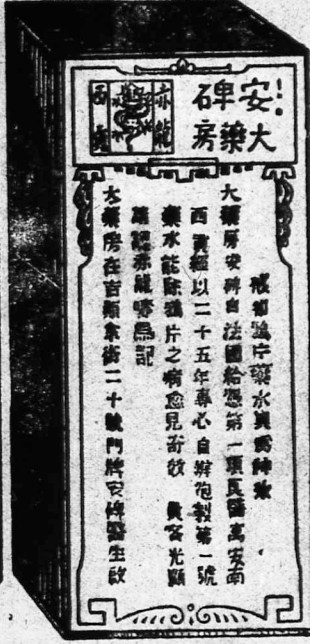 安大
碑藥房
赤龍
西貢
戒却鴉片藥水異常神效
大藥房安碑自法國給憑第一項良醫寓安南
西貢經以二十五年專心自辦炮製第一號
藥水能除鴉片之病愈見奇效 貴客光顧
請認赤龍嘜為記
大藥房在吉顛拿街二十號門牌安碑醫生啟